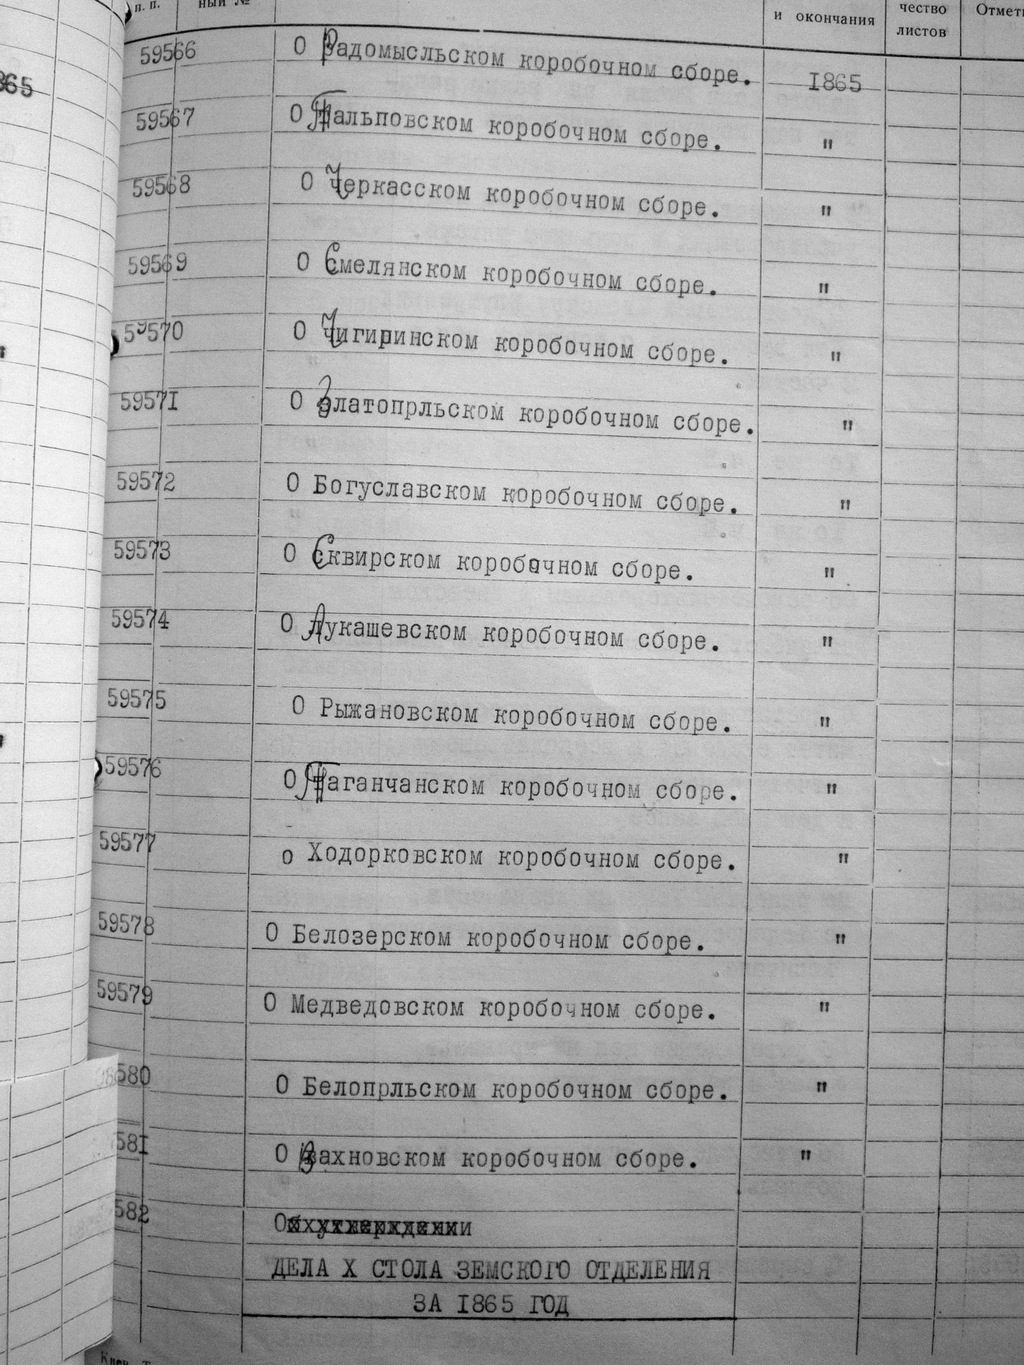 п. п.
ный №
и окончания
чество
листов
865
59566 О Радомысльском коробочном сборе. 1865
59567 О Тальповском коробочном сборе. "
59568 О Черкасском коробочном сборе. "
59569 О Смелянском коробочном сборе. "
59570 О Чигиринском коробочном сборе. "
59571 О Златопрльском коробочном сборе. "
59572 О Богуславском коробочном сборе. "
59573 О Сквирском коробочном сборе. "
59574 О Лукашевском коробочном сборе. "
59575 О Рыжановском коробочном сборе. "
59576 О Таганчанском коробочном сборе. "
59577 о Ходорковском коробочном сборе. "
59578 О Белозерском коробочном сборе. "
59579 О Медведовском коробочном сборе. "
580 О Белопрльском коробочном сборе. "
581 О Вахновском коробочном сборе. "
582
ДЕЛА X СТОЛА ЗЕМСКОГО ОТДЕЛЕНИЯ
ЗА 1865 ГОД